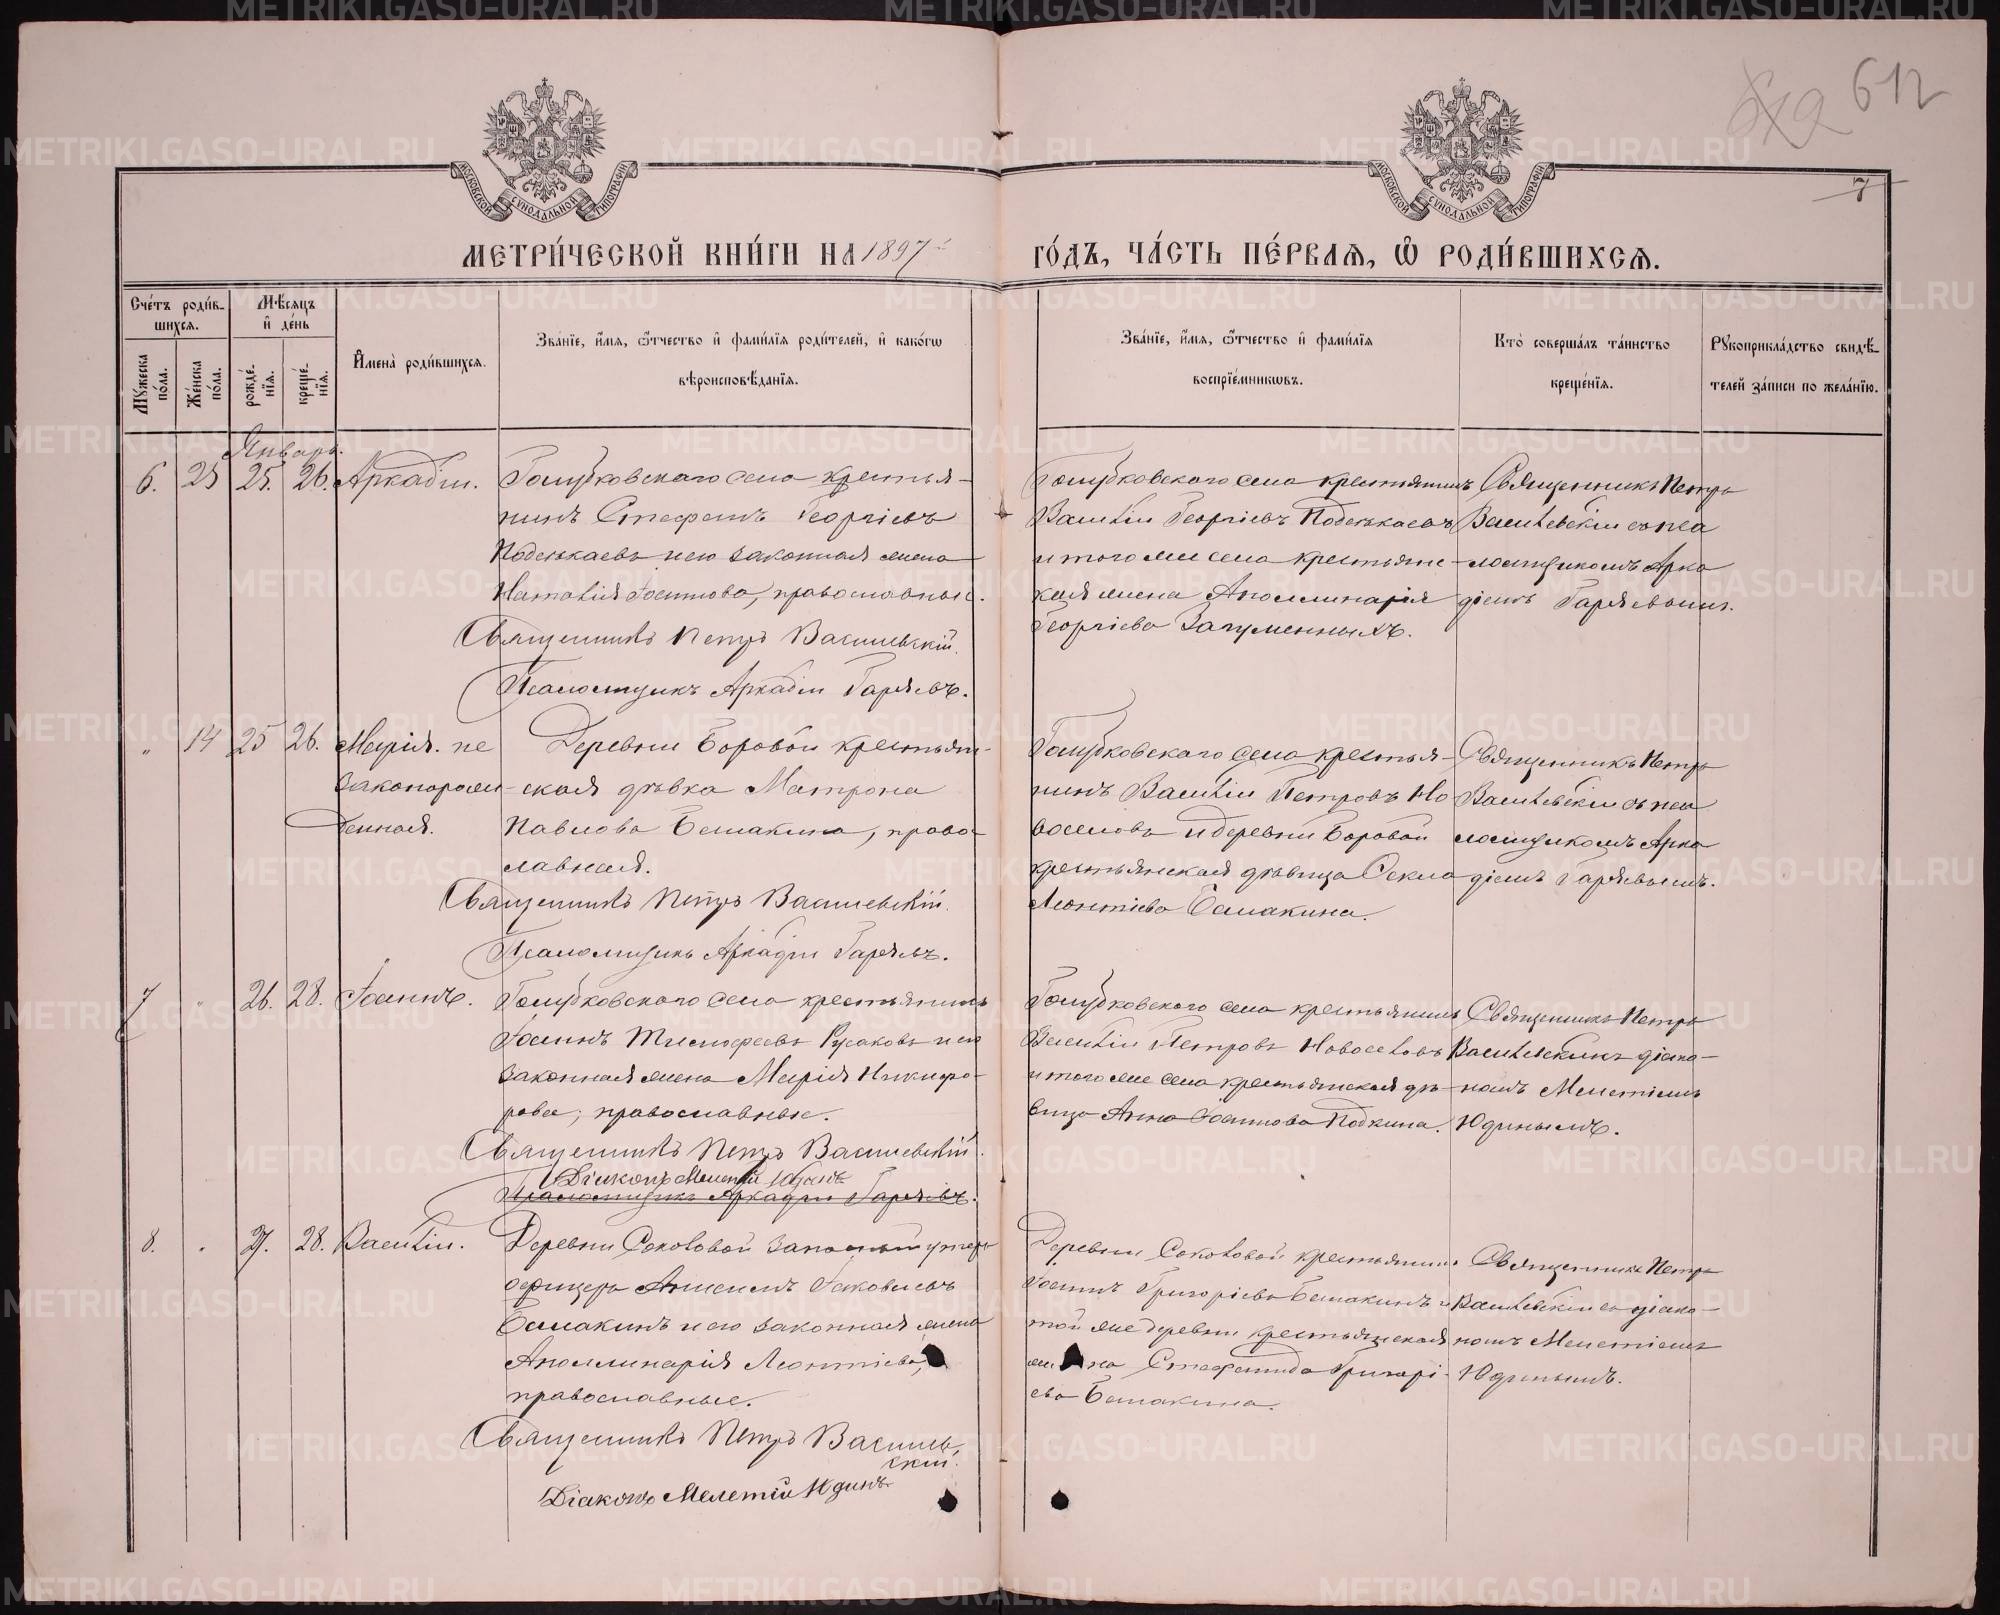 612
7
МОСКОВСКОЙ СѴНОДАЛЬНОЙ ТИПОГРАФІИ
МОСКОВСКОЙ СѴНОДАЛЬНОЙ ТИПОГРАФІИ
МЕТРИ́ЧЕСКОЙ КНИ́ГИ НА 1897
ГО́ДЪ, ЧА́СТЬ ПЕ́РВАѦ, Ѽ РОДИ́ВШИХСѦ.
Сче́тъ роди́в-
шихсѧ.
Мѣ́сѧцъ
и҆ де́нь
Мꙋ́жеска по́ла.
Же́нска по́ла.
рожде́-
нїѧ.
креще́-
нїѧ.
И҆мена̀ роди́вшихсѧ.
Зва́нїе, и҆́мѧ, ѻ҆́тчество и҆ фами́лїѧ роди́телей, и҆ како́гѡ
вѣроисповѣ́данїѧ.
Зва́нїе, и҆́мѧ, ѻ҆́тчество и҆ фами́лїѧ
воспрїе́мникѡвъ.
Кто̀ соверша́лъ та́инство
креще́нїѧ.
Рꙋкоприкла́дство свидѣ́-
телей за́писи по жела́нїю.
Январь.
6. 25. 26. Аркадій.
Голубковскаго села крестья-
нинъ Стефанъ Георгіевъ
и его законная жена
Наталія Іоаннова, православные.
Священникъ Петръ Василевскій.
Псаломщикъ Аркадій Гаряевъ.
Голубковскаго села крестьянинъ
Василій Георгіевъ
и того же села крестьянс-
кая жена Аполлинарія
Георгіева Загуменныхъ.
Священникъ Петръ
Василевскій съ пса
ломщикомъ Арка
діемъ Гаряевымъ.
" 14 25 26. Марія. не
законорож-
денная.
Деревни Боровой крестьян-
ская дѣвка Матрона
Павлова Бамакина, право-
славная.
Священникъ Петръ Василевскій.
Псаломщикъ Аркадій Гаряевъ.
Голубковскаго села крестья-
нинъ Василій Петровъ Но
воселовъ и деревни Боровой
крестьянская дѣвица Фекла
Леонтіева Бамакина.
Священникъ Петръ
Василевскій съ пса
ломщикомъ Арка
діемъ Гаряевымъ.
7 " 26. 28. Іоаннъ.
Голубковскаго села крестьянинъ
Іоаннъ Тимофеевъ Русаковъ и его
законная жена Марія Никифо-
рова, православные.
Священникъ Петръ Василевскій.
Діаконъ Мелетій Юдинъ
Псаломщикъ Аркадій Гаряевъ.
Голубковскаго села крестьянинъ
Василій Петровъ Новоселовъ
и того же села крестьянская дѣ-
вица Анна Іоаннова Подкина.
Священникъ Петръ
Василевскій съ діако-
номъ Мелетіемъ
Юдинымъ.
8. " 27. 28. Василій.
Деревни Соколовой запасный унтеръ
офицеръ Анисимъ Іаковлевъ
Бамакинъ и его законная жена
Аполлинарія Леонтіева,
православные.
Священникъ Петръ Василев-
скій.
Діаконъ Мелетій Юдинъ
Деревни Соколовой крестьянинъ
Іоаннъ Григорьевъ Бамакинъ и
той же деревни крестьянская
жена Стефанида Григорі-
ева Бамакина.
Священникъ Петръ
Василевскій съ діако-
номъ Мелетіемъ
Юдинымъ.
METRIKI.GASO-URAL.RU